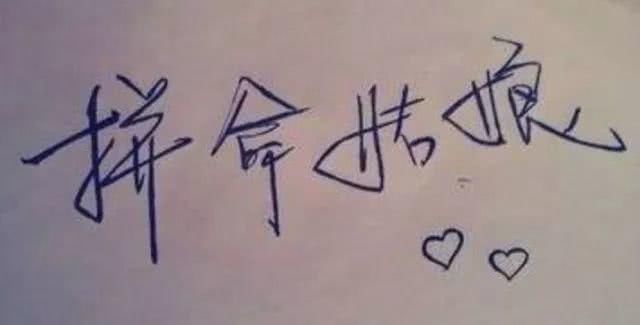 拼命姑娘